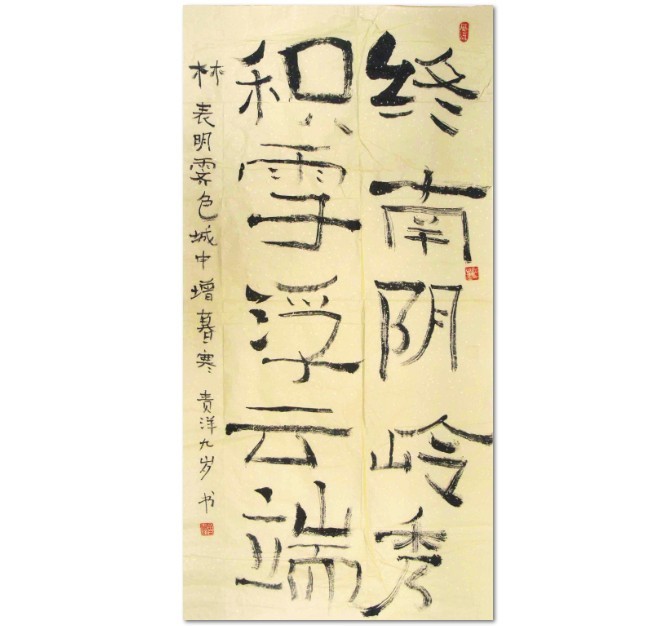 终南阴岭秀
积雪浮云端
林表明霁色城中增暮寒 贵洋九岁书